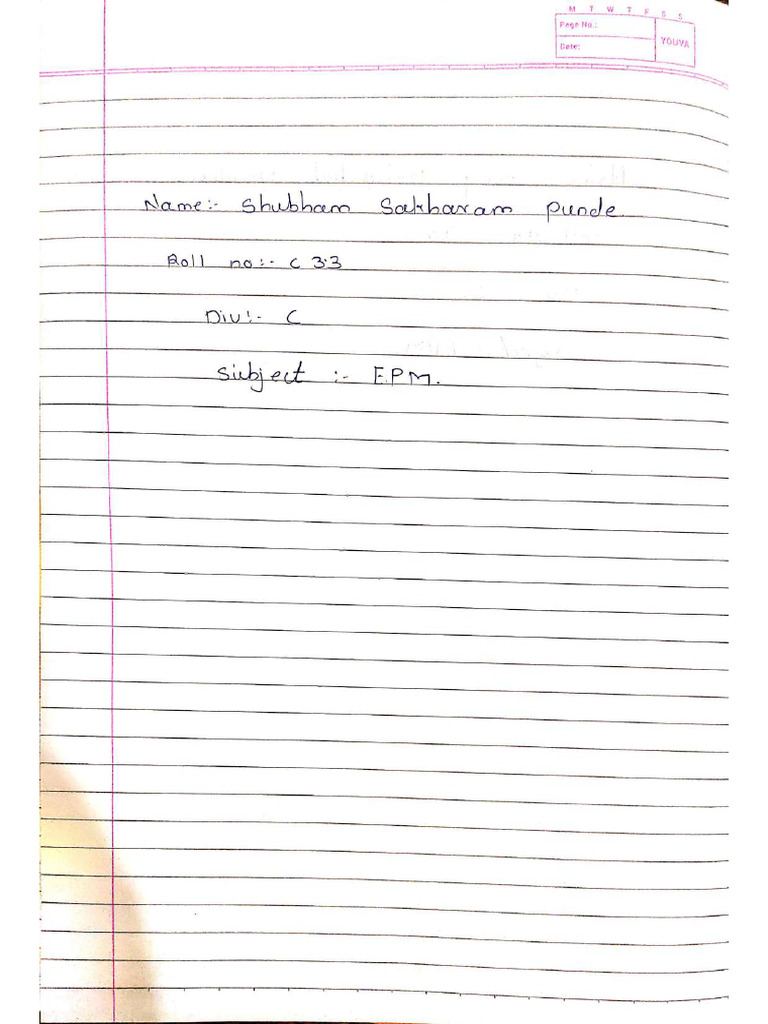 M T W T F S S
Page No.:
Date:
YOUVA
Name:- Shubham Sakharam Punde.
Roll no:- C 33
Div:- C
Subject :- E.P.M.